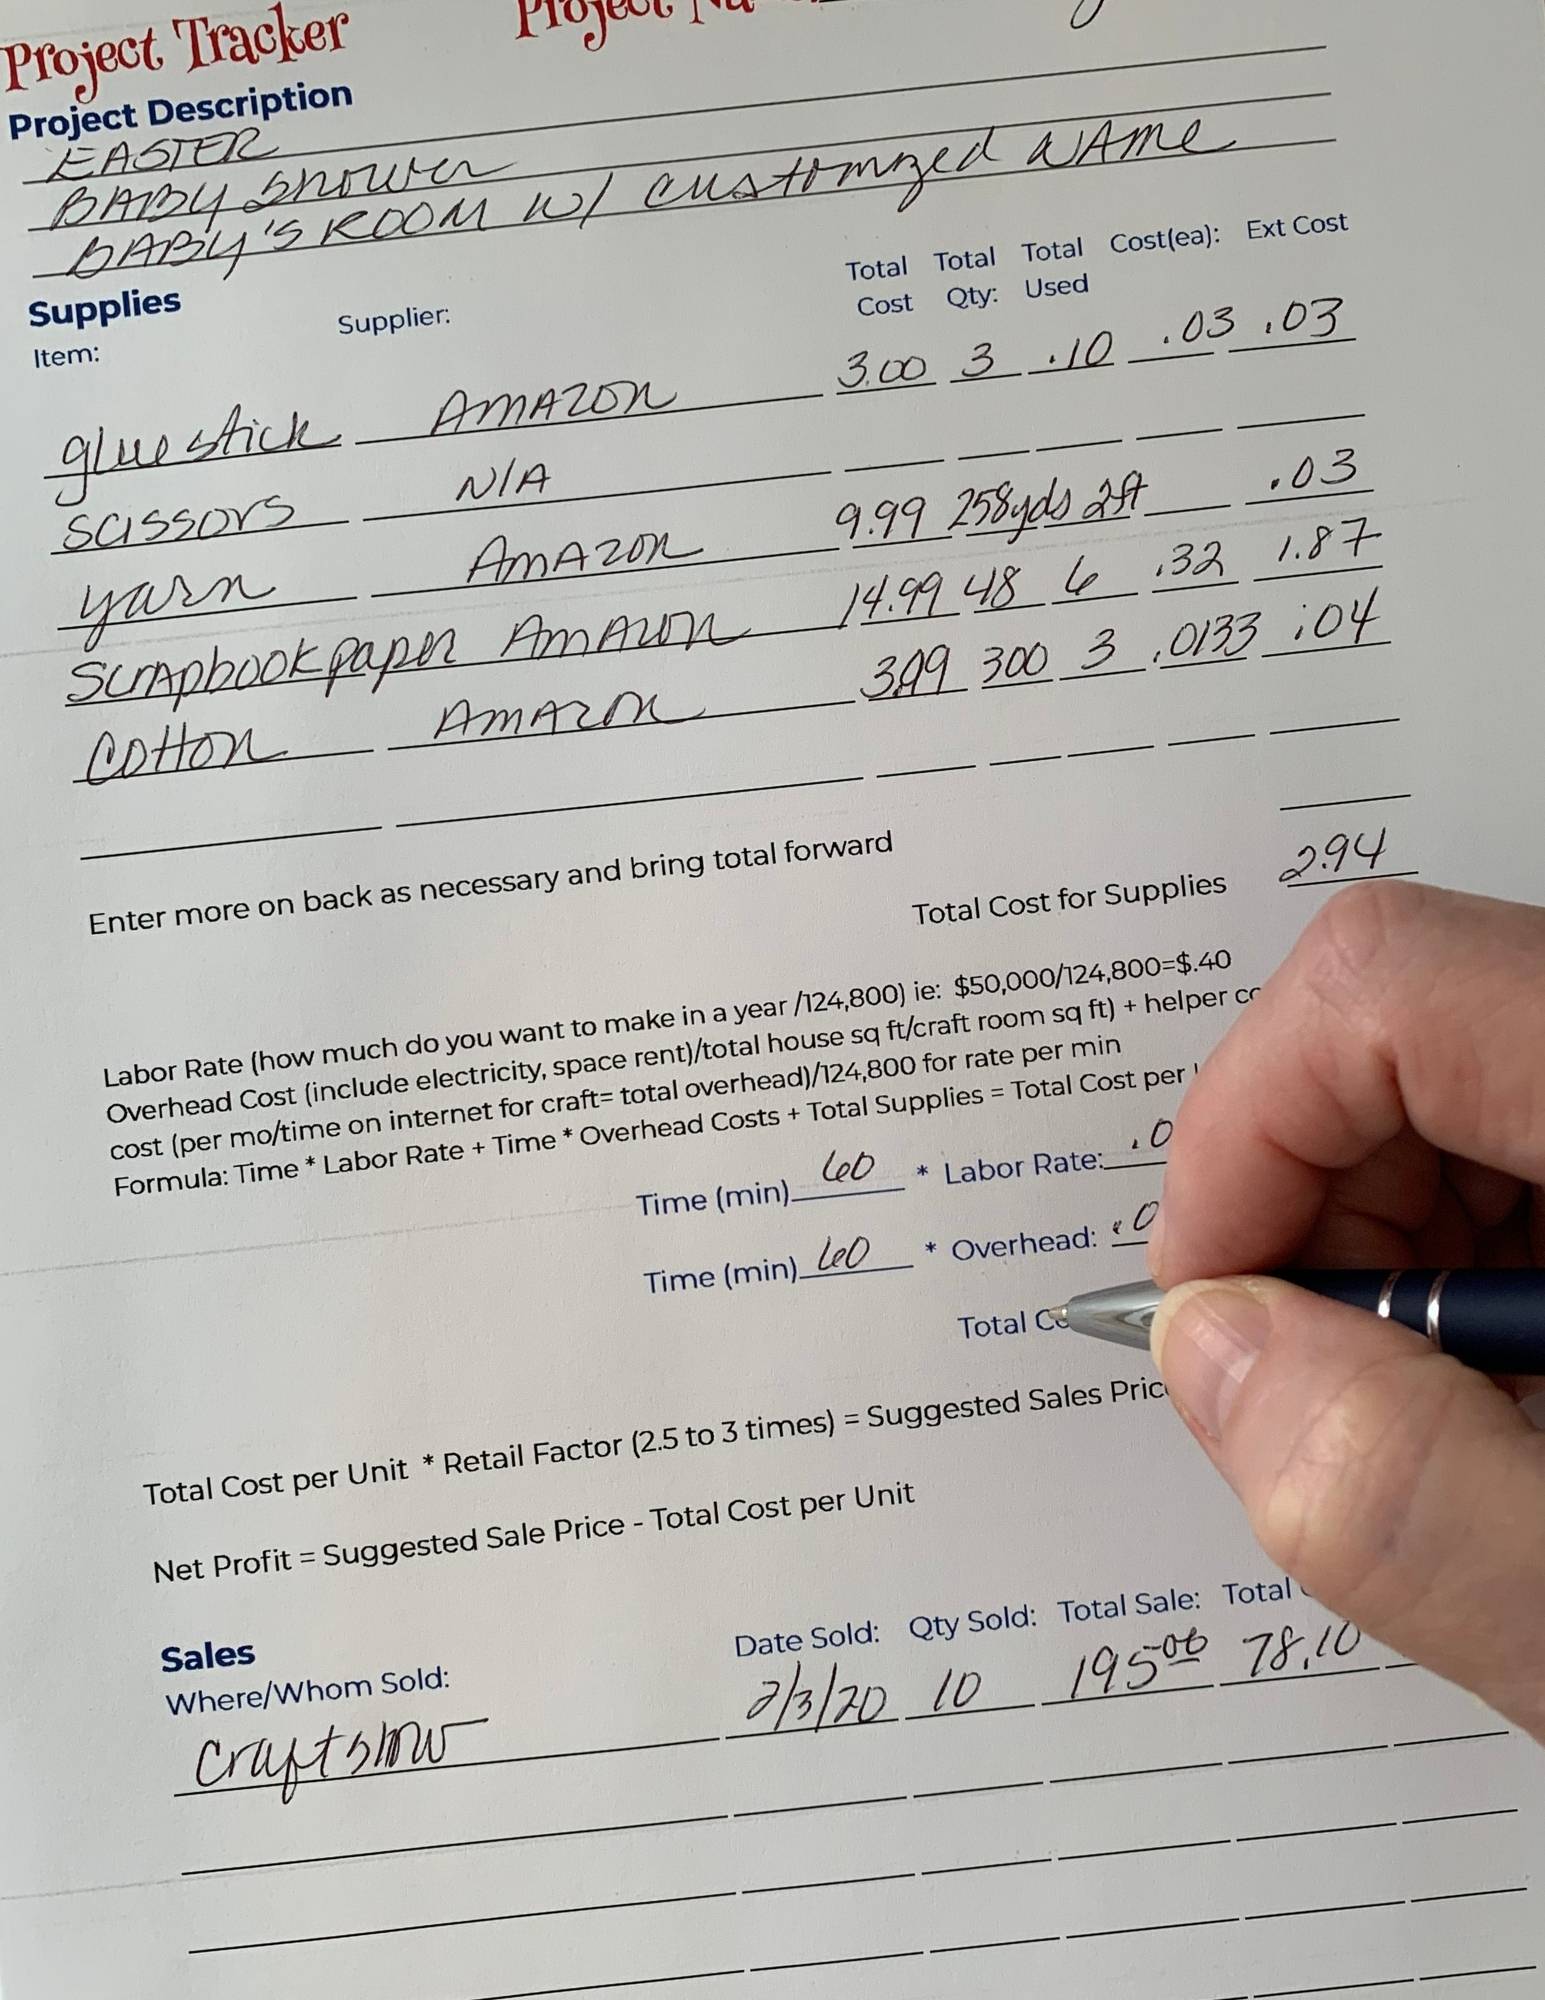 Project Tracker
Project Description
EASTER
BABY Shower
BABY'S ROOM W/ customized NAME
Supplies
Item: Supplier: Total Cost Total Qty: Total Used Cost(ea): Ext Cost
glue stick AMAZON 3.00 3 .10 .03 .03
scissors N/A
yarn AMAZON 9.99 258yds 2ft .03
Scrapbook paper AMAZON 14.99 48 6 .32 1.87
Cotton AMAZON 3.99 300 3 .0133 .04
Enter more on back as necessary and bring total forward
Total Cost for Supplies 2.94
Labor Rate (how much do you want to make in a year /124,800) ie: $50,000/124,800=$.40
Overhead Cost (include electricity, space rent)/total house sq ft/craft room sq ft) + helper
cost (per mo/time on internet for craft= total overhead)/124,800 for rate per min
Formula: Time * Labor Rate + Time * Overhead Costs + Total Supplies = Total Cost per
Time (min) 60 * Labor Rate: .0
Time (min) 60 * Overhead: .0
Total
Total Cost per Unit * Retail Factor (2.5 to 3 times) = Suggested Sales
Net Profit = Suggested Sale Price - Total Cost per Unit
Sales
Where/Whom Sold: Date Sold: Qty Sold: Total Sale: Total
Craftshow 2/3/20 10 195.00 78.10